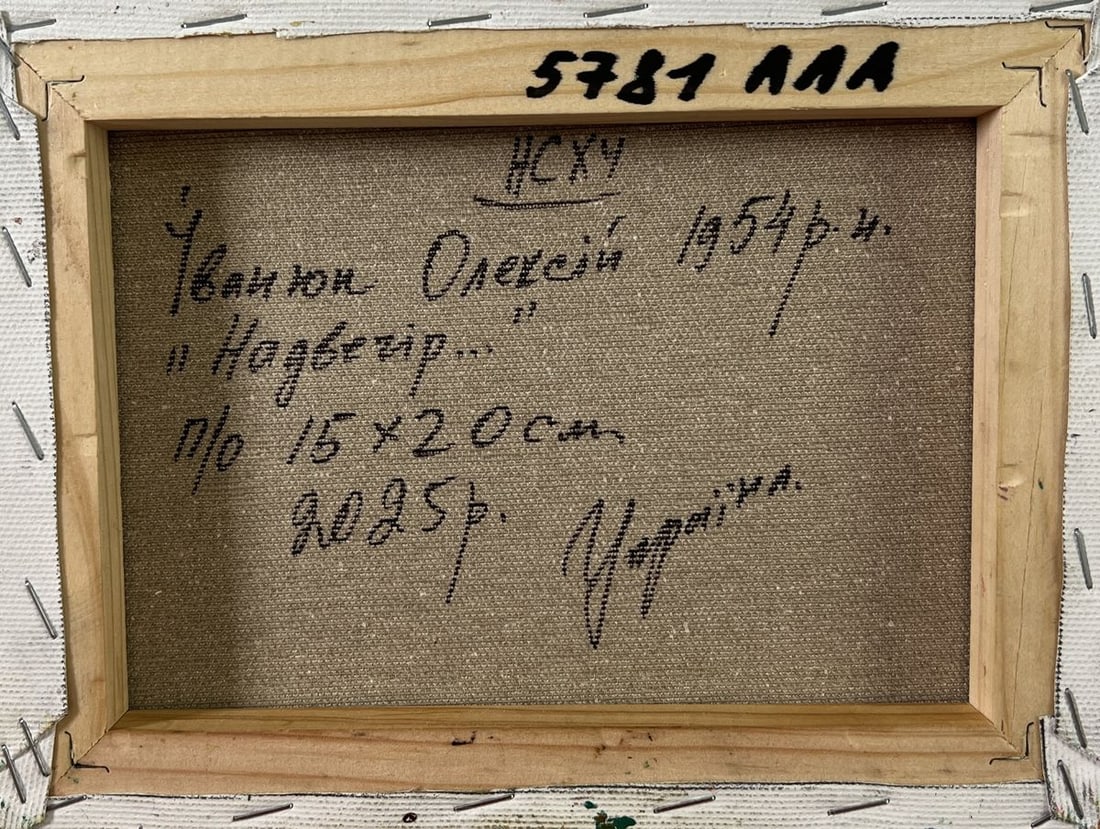 5781 ААА
НСХУ
Іванюк Олексій 1954 р.н.
"Надвечір..."
п/о 15×20см
2025р.
Україна.